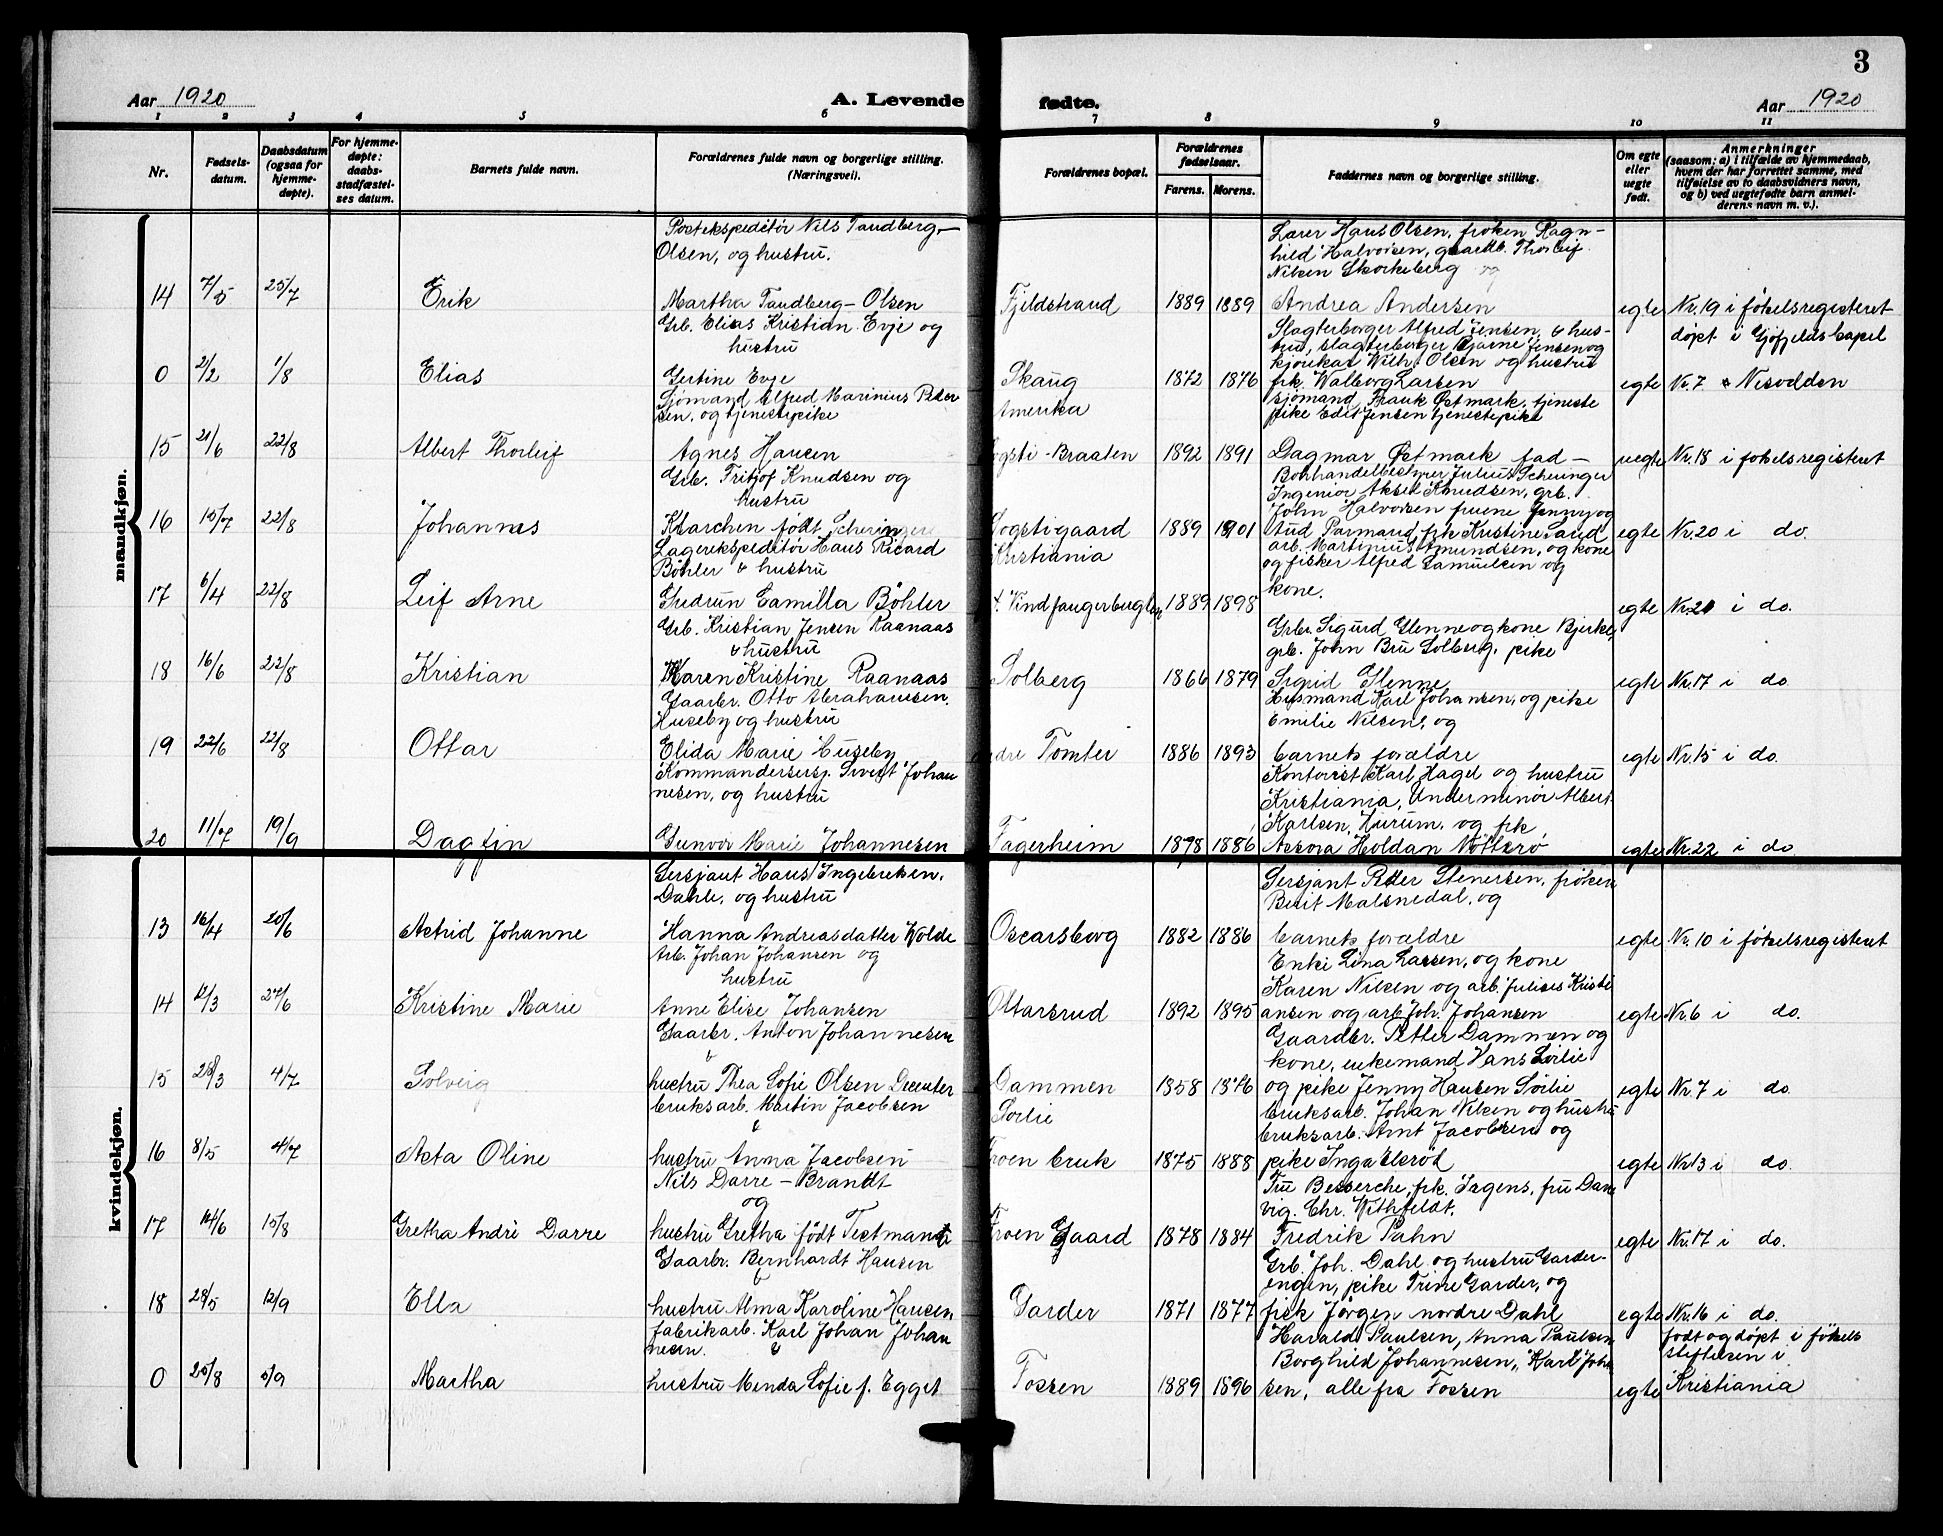 3
Aar 1920
A. Levende
fødte.
Aar 1920
1 2 3 4 5 6 7 8 9 10 11
Nr.
Fødsels-
datum.
Daabsdatum
(ogsaa for
hjemme-
døpte).
For hjemme-
døpte:
daabs-
stadfæstel-
ses datum.
Barnets fulde navn.
Forældrenes fulde navn og borgerlige stilling.
(Næringsvei).
Forældrenes bopæl.
Forældrenes
fødselsaar.
Farens. Morens.
Faddernes navn og borgerlige stilling.
Om egte
eller
uegte
født.
Anmerkninger
(saasom: a) i tilfælde av hjemmedaab,
hvem der har forrettet samme, med
tilføielse av to daabsvidners navn,
og b) ved uegtefødte barn anmel-
derens navn m. v.).
mandkjøn.
Postekspeditör Nils Tandberg-
Olsen, og hustru.
Lærer Hans Olsen, fröken Ragn-
hild Halvorsen, gaardb. Thorleif
Nilsen Skorkeberg og
14 7/5 25/7 Erik Martha Tandberg-Olsen Fjeldstrand 1889 1889 Andrea Andersen egte Nr. 19 i födselsregisteret
Grb. Elias Kristian Evje og
hustru
Slagterborger Alfred Jensen, & hus-
tru, slagterborger Bjarne Jensen og
kjöukar Wilh. Olsen og hustru
döpt i Gjöfjelds kapel
0 21/2 1/8 Elias Gertine Evje Skaug 1872 1876 frk. Walborg Larsen egte Nr. 7 Nesodden
Sjömand Alfred Marinius Peder
sen, og tjenestepike
Amerika
sjömand Frauk Östmark, tjeneste
pike Edit Jensen tjenestepike
15 21/6 22/8 Albert Thorleif Agnes Hansen Sogsti-Braaten 1892 1891 Dagmar Östmark fad- uegte Nr. 18 i födselsregisteret
Grb. Fritjof Knudsen og
hustru
Bokhandelbestyrer Julius Scheringer
Ingeniör Aksel Knudsen, grb.
John Halvorsen fruene Jenny og
16 15/7 22/8 Johannes Karchen födt Scheringer Sogstigaard 1889 1901 Aud Parmand, frk Kristine Sand egte Nr. 20 i do.
Lagerekspeditör Hans Ricard
Böhler & hustru
Kristiania
arb. Martinius Amundsen, og kone
og fisker Alfred Samuelsen og
17 6/4 22/8 Leif Arne Gudrun Camilla Böhler 1889 1898 kone. egte Nr. 21 i do.
Grb. Kristian Jensen Raanaas
& hustru
Grbr. Sigurd Glenne og kone Bjerke,
grb. John Bru Solberg, pike
18 16/6 22/8 Kristian Karen Kristine Raanaas Solberg 1866 1879 Sigrid Glenne egte Nr. 17 i do
Gaarbr. Otto Abrahamsen
Huseby og hustru
Husmand Karl Johansen, og pike
Emilie Nilsen, og
19 22/6 22/8 Ottar Elida Marie Huseby Tomter 1886 1893 barnets forældre egte Nr. 15 i do.
Kommandersersj. Sivert Johan
nesen, og hustru
Kontorist Karl Hagel og hustru
Kristiania, Underminör Albert
Karlsen, Hurum, og frk.
20 11/7 19/9 Dagfin Gunvor Marie Johannesen Fagerheim 1898 1886 Assora Holdan Nötterö egte Nr. 22 i do.
kvindekjøn.
Sersjant Hans Ingebretsen
Dahle, og hustru
Sersjant Peder Stenersen, fröken
Berit Malsnedal, og
13 16/4 20/6 Astrid Johanne Hanna Andreasdatter Wolde Oscarsborg 1882 1886 barnets forældre egte Nr. 10 i födselsregisteret
Arb. Johan Johansen og
hustru
Enke Lina Larsen, og kone
Karen Nilsen og arb. Julius Kristi
14 12/3 27/6 Kristine Marie Anne Elise Johansen Ottarsrud 1892 1895 ansen og arb Joh. Johansen egte Nr. 6 i do.
Gaarbr. Anton Johannesen
&
Gaardbr. Petter Dammen og
kone, enkemand Hans Sörlie
15 28/3 4/7 Solveig hustru Thea Sofie Olsen Dammen 1858 1876 og pike Jenny Hansen Sörlie egte Nr. 7 i do.
bruksarb. Martin Jacobsen
&
Sörlie
bruksarb. Johan Nilsen og hustru
bruksarb. Arnt Jacobsen og
16 8/5 4/7 Asta Oline hustru Anna Jacobsen Froen bruk 1875 1888 pike Inga Elsröd egte Nr 13 i do.
Nils Darre-Brandt
og
Fru Besserche, frk. Irgens, fru Dan
vig. Chr. Withfeldt.
17 14/6 15/8 Gretha Andri Darre hustru Gretha födt Testman Froen Gaard 1878 1884 Fredrik Pahn egte Nr. 17 i do.
Gaarbr. Bernhardt Hansen
&
Grb. Joh. Dahl og hustru Garder-
engen, pike Trine Garder, og
18 28/5 12/9 Ella hustru Alma Karoline Hansen Garder 1871 1877 fisk Jörgen nordre Dahl egte Nr. 16 i do.
fabrikarb. Karl Johan Johan
nesen. &
Harald Paulsen, Anna Paulsen
Borghild Johannesen, Karl Joha
födt og döpt i födsels
stiftelsen i
0 25/8 5/9 Martha hustru Menda Sofie f. Egget Fossen 1889 1896 sen, alle fra Fossen egte Kristiania